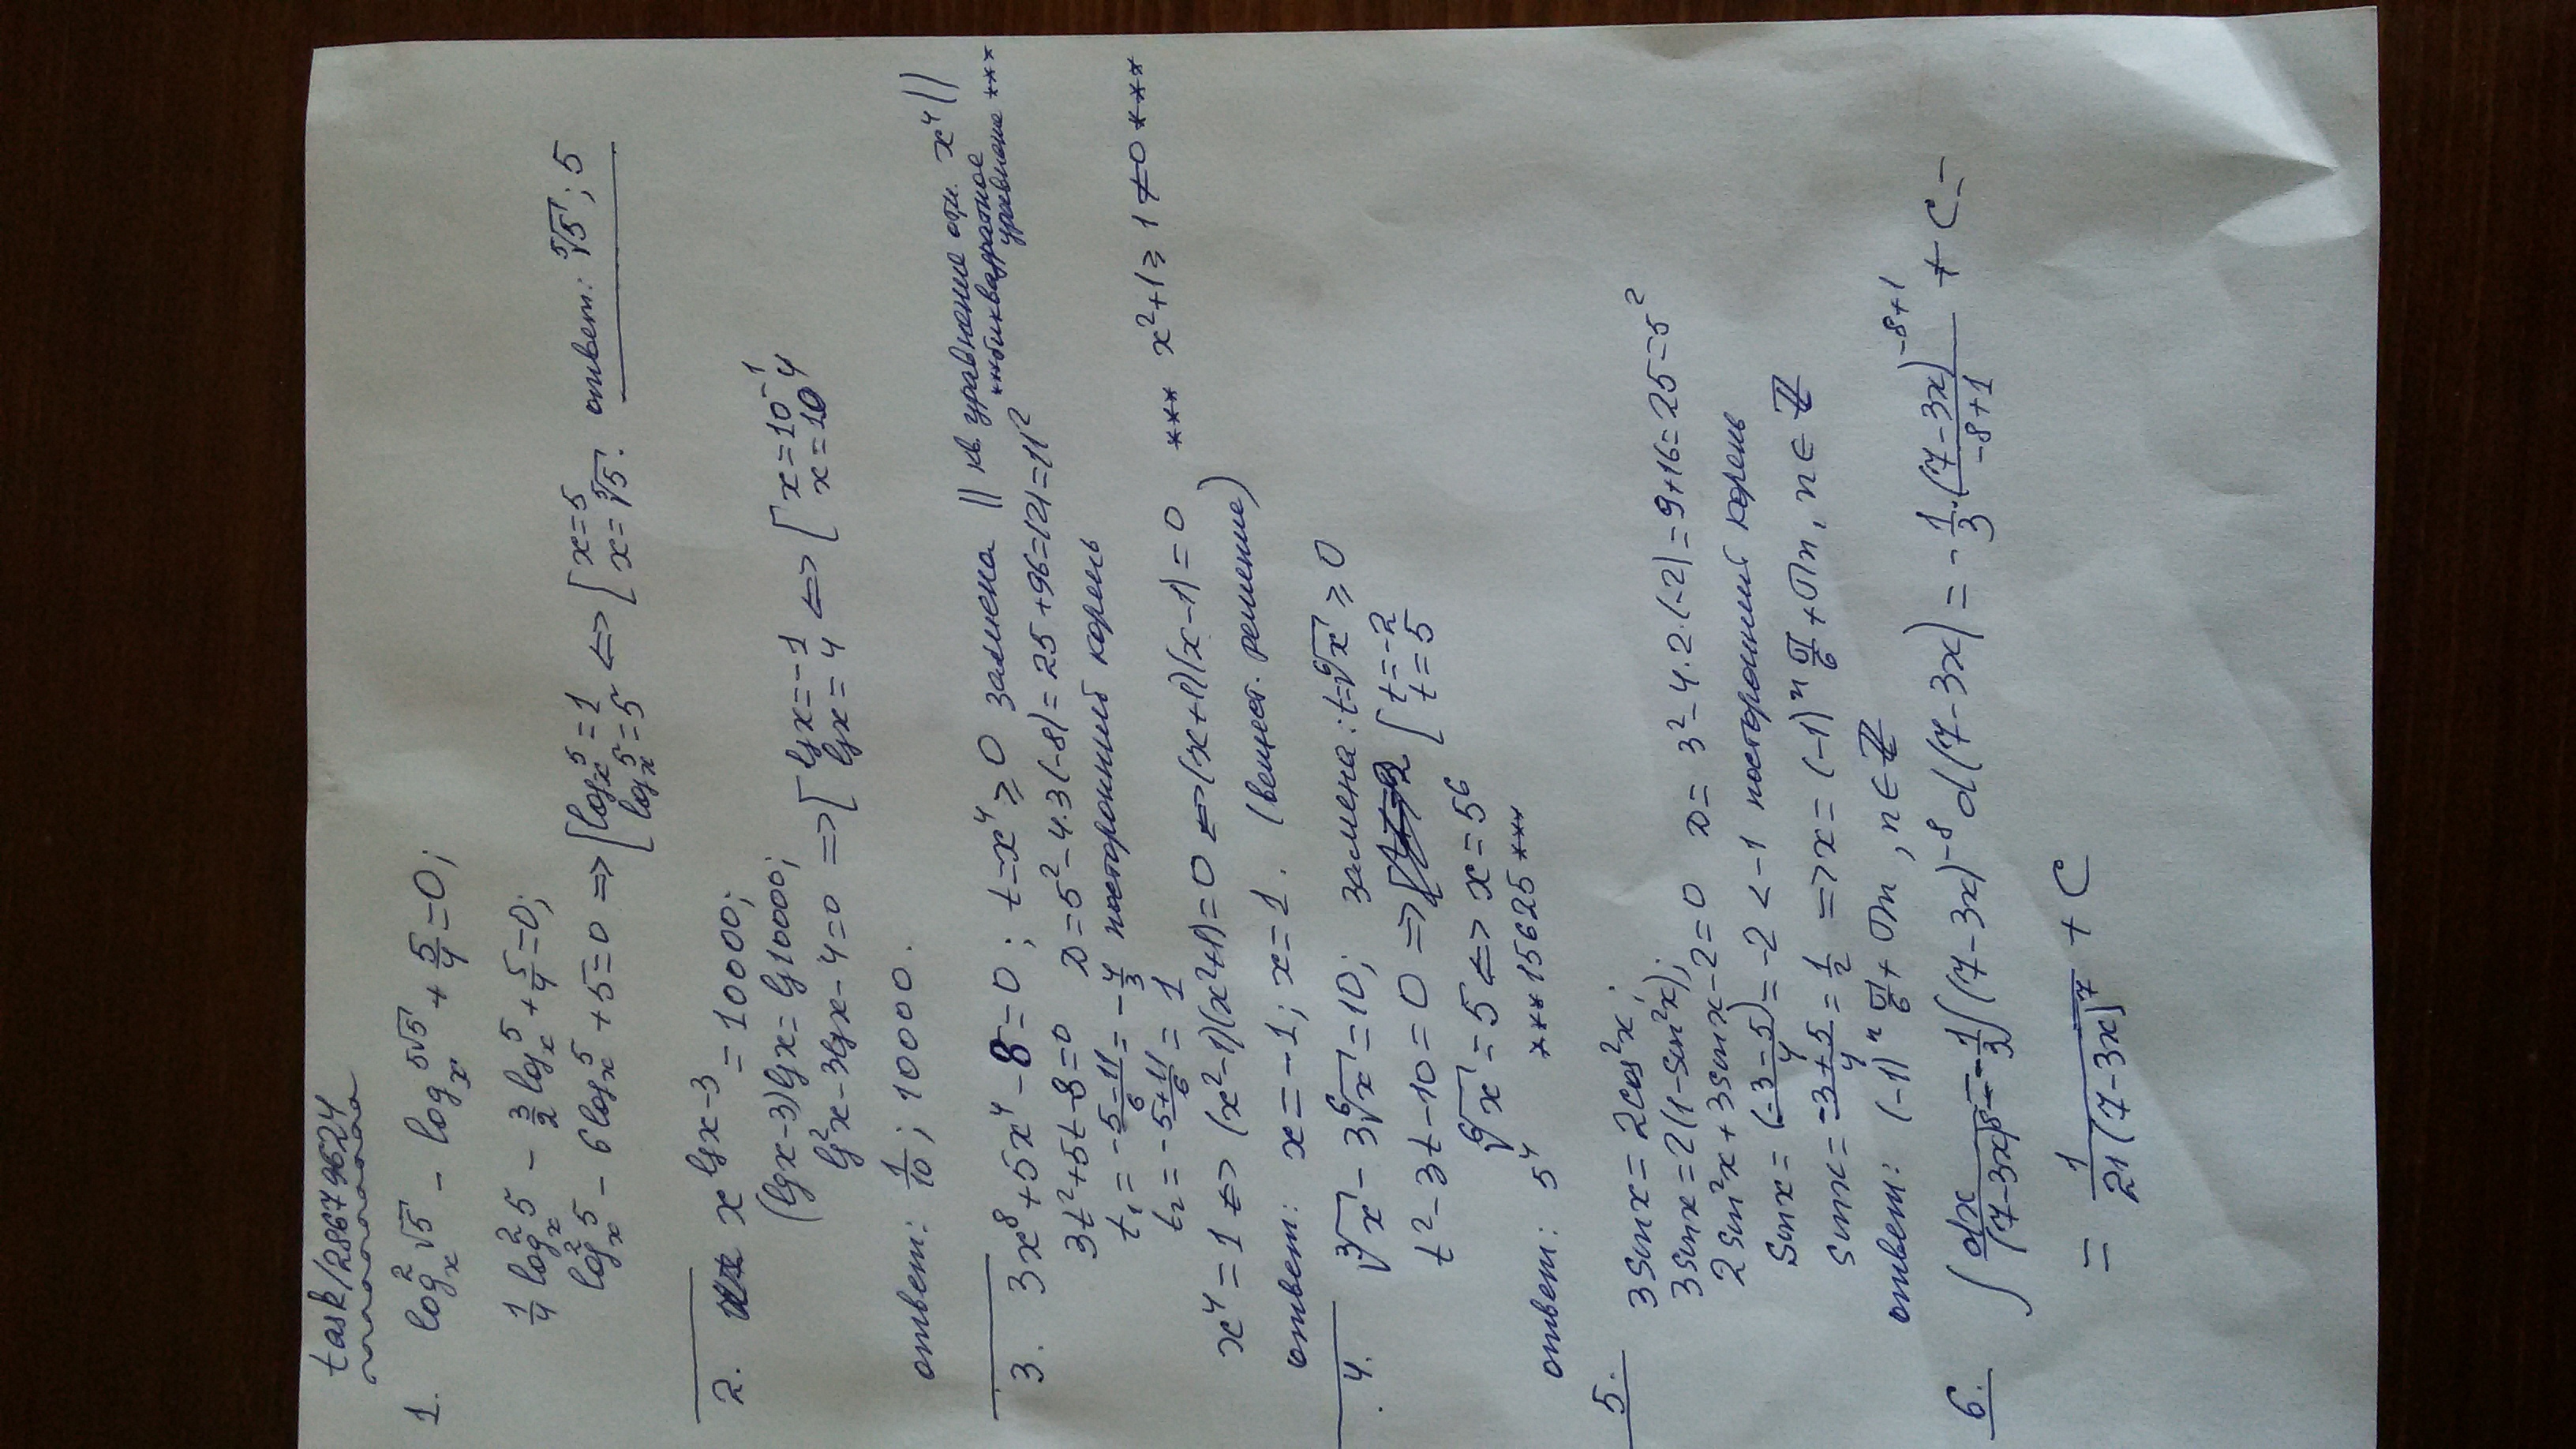 task/28679624
1. log²ₓ√5 − logₓ5√5 + 5/4 = 0;
1/4 log²ₓ5 − 3/2 logₓ5 + 5/4 = 0;
log²ₓ5 − 6logₓ5 + 5 = 0 => [logₓ5 = 1 logₓ5 = 5 <=> [x = 5 x = ⁵√5. ответ: ⁵√5; 5
2. x^(lgx−3) = 10000;
(lgx−3)lgx = lg10000;
lg²x − 3lgx − 4 = 0 => [lgx = −1 lgx = 4 <=> [x = 10⁻¹ x = 10⁴
ответ: 1/10; 10000.
3. 3x⁸ + 5x⁴ − 8 = 0; t = x⁴ ≥ 0 замена || кв. уравнение отн. x⁴ ||
***биквадратное уравнение ***
3t² + 5t − 8 = 0 D = 5² − 4·3(−8) = 25 + 96 = 121 = 11²
t₁ = (−5−11)/6 = −4/3 посторонний корень
t₂ = (−5+11)/6 = 1
x⁴ = 1 <=> (x²−1)(x²+1) = 0 <=> (x+1)(x−1) = 0 *** x²+1 ≥ 1 ≠ 0 ***
ответ: x = −1; x = 1. (веществ. решение)
4. ³√x − 3⁶√x = 10; замена: t = ⁶√x ≥ 0
t² − 3t − 10 = 0 => [t = −2 t = 5
⁶√x = 5 <=> x = 5⁶
ответ: 5⁴ *** 15625 ***
5. 3sinx = 2cos²x;
3sinx = 2(1−sin²x);
2sin²x + 3sinx − 2 = 0 D = 3² − 4·2·(−2) = 9 + 16 = 25 = 5²
sinx = (−3−5)/4 = −2 < −1 посторонний корень
sinx = (−3+5)/4 = 1/2 => x = (−1)ⁿ π/6 + πn, n ∈ Z
ответ: (−1)ⁿ π/6 + πn, n ∈ Z
6. ∫ dx/(7−3x)⁸ = −1/3 ∫(7−3x)⁻⁸ d(7−3x) = −1/3 · (7−3x)⁻⁸⁺¹/(−8+1) + C =
= 1/(21(7−3x)⁷) + C